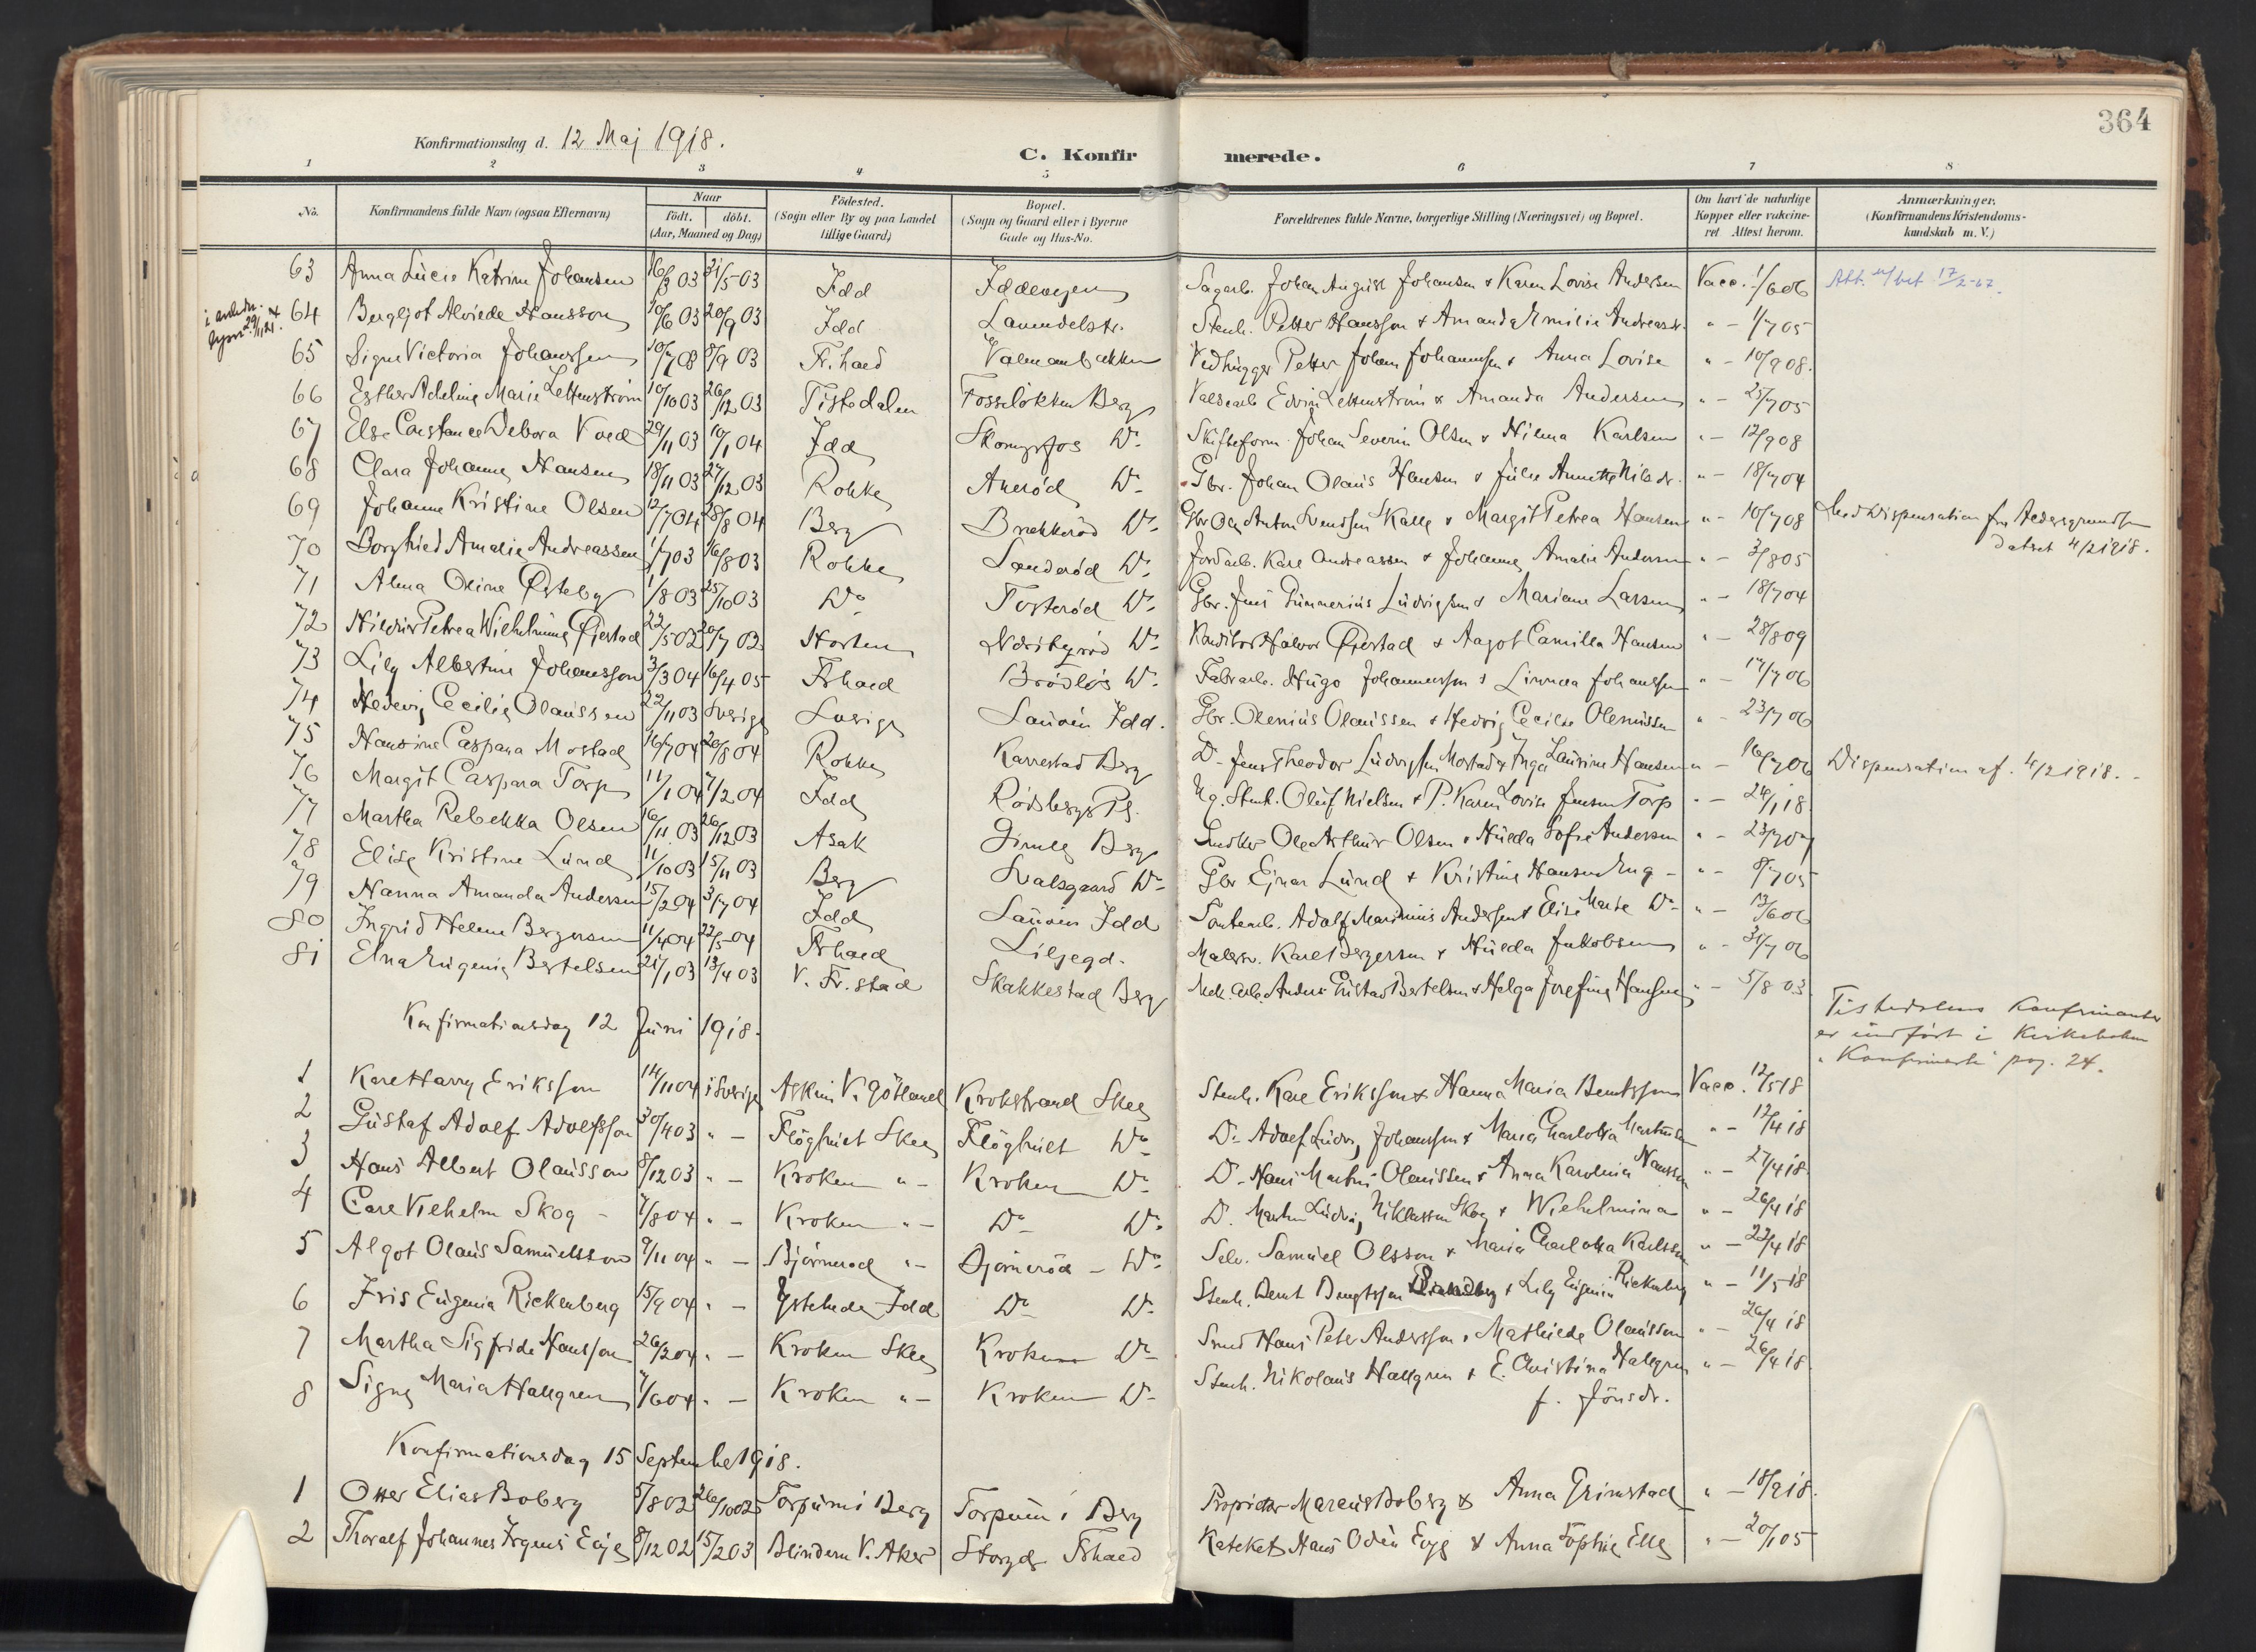 364
Konfirmationsdag d. 12 Maj 1918.
C. Konfirmerede.
1 2 3 4 5 6 7 8
No. Konfirmandens fulde Navn (ogsaa Efternavn) Naar født. døbt. (Aar, Maaned og Dag) Fødested. (Sogn eller By og paa Landet tillige Gaard) Bopæl. (Sogn og Gaard eller i Byerne Gade og Hus-No. Forældrenes fulde Navne, borgerlige Stilling (Næringsvei) og Bopæl. Om havt de naturlige Kopper eller vakcineret Attest herom. Anmærkninger. (Konfirmandens Kristendomskundskab m. V.)
63 Anna Lucie Katrine Johansen 31/5-03 Idd Iddevejen Sagarb. Johan August Johansen & Karen Lovise Andersen Vacc. 1/6 06 Att. 17/2-67.
64 Bergljot Alviede Hansson 10/6 03 20/9 03 Idd Lavendelstr. Stenh. Petter Hansson & Amanda Emilie Andreasdr. " - 1/7 05
65 Signe Victoria Johanssen 8/9 03 Fr.hald Valmanbakken Vedhugger Petter Johan Johannsen & Anna Lovise " - 10/9 08.
66 Esther Adeline Marie Lettenstrøm 10/10 03 26/12 03 Tistedalen Fossløkken Berg Valsearb. Edvin Lettenstrøm & Amanda Andersen " - 25/7 05
67 Else Constance Debora Voed 29/11 03 10/1 04 Idd Skonyrfos Do. Skifteform. Johan Severin Olsen & Hilma Karlsen " - 12/9 08
68 Clara Johanne Hansen 18/11 03 27/12 03 Rokke Anerød Do. Gbr. Johan Olaus Hansen & Julie Annette Nilsdr. " - 18/7 04
69 Johanne Kristine Olsen 12/7 04 28/8 04 Berg Brekkerød Do. Gbr Ole Anton Svendsen Kalle & Margit Petrea Hansen " - 10/7 08 Med Dispensation fra datert 4/2 1918.
70 Borghild Amalie Andreassen 1/7 03 16/8 03 Rokke Sanderød Do. Jordarb. Karl Andreassen & Johanne Amalie Andersen " - 3/8 05
71 Alma Oline Østeby 1/8 03 25/10 03 Do Tosterød Do. Gbr. Jens Gunnerius Ludvigsen & Mariane Larsen " - 18/7 04
72 Hildur Petrea Wilhelmine Øjestad 22/5 02 20/7 02 Horten Nordbyrød Do. Konditor Halvor Øjestad & Aagot Camilla Hansen " - 28/8 09
73 Lily Albertine Johansson 3/3 04 16/4 05 Frhald Brødløs Do. Fabrarb. Hugo Johannesson & Linnea Johansson " - 17/7 06
74 Hedevig Cecilie Olaussen 22/11 03 Sverige Sverige Sauøen Idd. Gbr. Olenius Olaussen & Hedvig Cecilie Olenissen " - 23/7 06
75 Hansine Caspara Mostad 16/7 04 28/8 04 Rokke Karrestad Berg Do. Jens Theodor Ludvigsen Mostad & Inga Laurine Hansen " - 16/7 06 Dispensation af. 4/2 1918.
76 Margit Caspara Torp 11/1 04 7/2 04 Idd Rødsberg Pl. Ug. Stenh. Oluf Nielsen & P. Karen Lovise Jensen Torp " - 24/1 18.
77 Martha Rebekka Olsen 16/11 03 26/12 03 Asak Gimle Berg Snedker Ole Arthur Olsen & Hulda Sofie Andersen " - 23/7 07
78 Elise Kristine Lund 11/10 03 15/11 03 Berg Svalsgaard Do. Gbr Ejnar Lund & Kristine Hansen Eng - " - 8/7 05
79 Nanna Amanda Andersen 15/2 04 3/7 04 Idd Sauøen Idd Tomtearb. Adolf Marinius Andersen & Elise Marie Do. " - 13/6 06
80 Ingrid Helene Bergersen 11/4 04 22/5-04 Frhald Liljegd. Malersv. Karl Bergersen & Hulda Jakobsen " - 31/7 06
81 Elna Eugenie Bertelsen 21/1 03 13/4 03 V. Fr.stad Skakkestad Berg Mek. Arb. Anders Gustav Bertelsen & Helga Josefine Hansen " - 5/8 03
Konfirmationsdag 12 Juni 1918.
Tistedalens Konfirmanter
er indført i Kirkeboken
"Konfirmerte" pag. 24.
1 Karl Harry Eriksson 14/11 04 i Sverige Askim V. Götland Krokstrand Skee Stenh. Karl Eriksson & Hanna Maria Berntsson Vacc. 12/5 18
2 Gustaf Adolf Adolfsson 30/4 03 " - Fløghult Skee Fløghult Do. Do. Adolf Ludv. Johansson & Maria Charlotta Martinsen " - 12/4 18
3 Hans Albert Olausson 8/12 03 " - Kroken " - Kroken Do. Do. Hans Martin Olaussen & Anna Karolina Hansen " - 27/4 18.
4 Carl Vilhelm Skog - 7/8 04 " - Kroken " - Do Do. Do. Martin Ludvig Niklassen Skog & Wilhelmina " - 26/4 18
5 Algot Olaus Samuelsson 9/11 04 " - Bjørnerød " - Bjørnerød - Do. Selv. Samuel Olsson & Maria Charlotta Karlsson " - 22/4 18
6 Iris Eugenia Rickenberg 15/9 04 " - Ystehede Idd Do Do. Stenh. Bernt Bengtsson & Lily Eugenia Rickenberg " - 11/5-18
7 Martha Sigfride Hansson 26/2 04 " - Kroken Skee Kroken Do. Smed Hans Peter Andersson & Mathilde Olausson " - 26/4 18
8 Signe Maria Hallgren 7/6 04 " - Kroken " - Kroken Do. Stenh. Nikolaus Hallgren & E. Christina Hallgren " - 26/4 18.
f. Jönsdr.
Konfirmationsdag 15 September 1918.
1 Otter Elias Boberg 5/8 02 26/10 02 Torpum i Berg Torpum i Berg Proprietær Marcus Boberg & Anna Grimstad " - 18/9 18.
2 Thoralf Johannes Irgens Evje 8/12 02 15/2 03 Blindern V. Aker Storgd Frhald Kateket Hans Odin Evje & Anna Sophie Elle " - 20/1 05